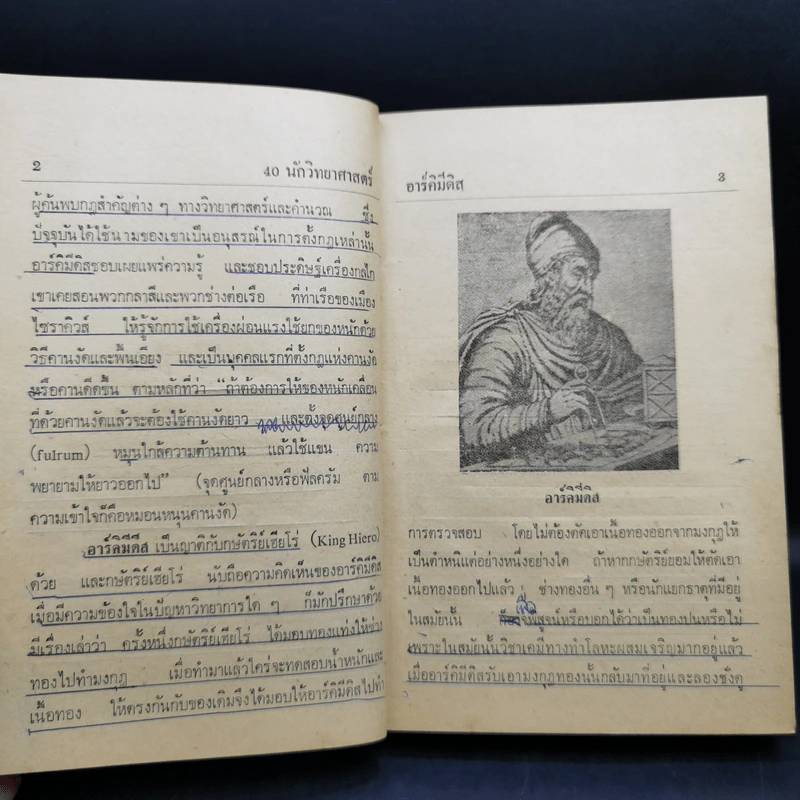 2
40 นักวิทยาศาสตร์
ผู้ค้นพบกฎสำคัญต่าง ๆ ทางวิทยาศาสตร์และคำนวณ ซึ่ง
ปัจจุบันได้ใช้นามของเขาเป็นอนุสรณ์ในการตั้งกฎเหล่านั้น
อาร์คิมีดิสชอบเผยแพร่ความรู้ และชอบประดิษฐ์เครื่องกลไก
เขาเคยสอนพวกกลาสีและพวกช่างต่อเรือ ที่ท่าเรือของเมือง
ไซราคิวส์ ให้รู้จักการใช้เครื่องผ่อนแรงใช้ยกของหนักด้วย
วิธีคานงัดและพื้นเอียง และเป็นบุคคลแรกที่ตั้งกฎแห่งคานงัด
หรือคานดีดขึ้น ตามหลักที่ว่า "ถ้าต้องการให้ของหนักเคลื่อน
ที่ด้วยคานงัดแล้วจะต้องใช้คานงัดยาว และตั้งจุดศูนย์กลาง
(fulrum) หมุนใกล้ความต้านทาน แล้วใช้แขน ความ
พยายามให้ยาวออกไป" (จุดศูนย์กลางหรือฟัลครัม ตาม
ความเข้าใจก็คือหมอนหนุนคานงัด)
อาร์คิมีดีส เป็นญาติกับกษัตริย์เฮียโร่ (King Hiero)
ด้วย และกษัตริย์เฮียโร่ นับถือความคิดเห็นของอาร์คิมีดิส
เมื่อมีความข้องใจในปัญหาวิทยาการใด ๆ ก็มักปรึกษาด้วย
มีเรื่องเล่าว่า ครั้งหนึ่งกษัตริย์เฮียโร่ ได้มอบทองแท่งให้ช่าง
ทองไปทำมงกุฎ เมื่อทำมาแล้วใคร่จะทดสอบน้ำหนักและ
เนื้อทอง ให้ตรงกันกับของเดิมจึงได้มอบให้อาร์คิมีดิสไปทำ
อาร์คิมีดิส
3
อาร์คิมีดิส
การตรวจสอบ โดยไม่ต้องตัดเอาเนื้อทองออกจากมงกุฎให้
เป็นตำหนิแต่อย่างหนึ่งอย่างใด ถ้าหากกษัตริย์ยอมให้ตัดเอา
เนื้อทองออกไปแล้ว ช่างทองอื่น ๆ หรือนักแยกธาตุที่มีอยู่
ในสมัยนั้น ก็คงพิสูจน์หรือบอกได้ว่าเป็นทองปนหรือไม่
เพราะในสมัยนั้นวิชาเคมีทางทำโลหะผสมเจริญมากอยู่แล้ว
เมื่ออาร์คิมีดิสรับเอามงกุฎทองนั้นกลับมาที่อยู่และลองชั่งดู